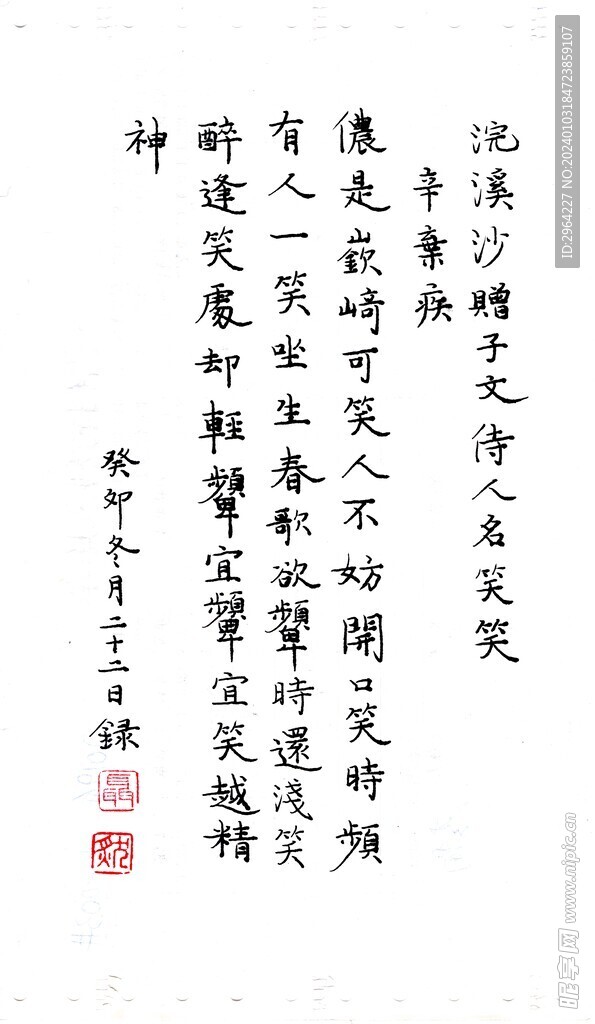 浣溪沙贈子文侍人名笑笑
辛棄疾
儂是嶔崎可笑人不妨開口笑時頻
有人一笑坐生春歌欲顰時還淺笑
醉逢笑處却輕顰宜顰宜笑越精
神
癸卯冬月二十二日録
ID:2964227 NO:20240103184723859107
昵享网 www.nipic.cn